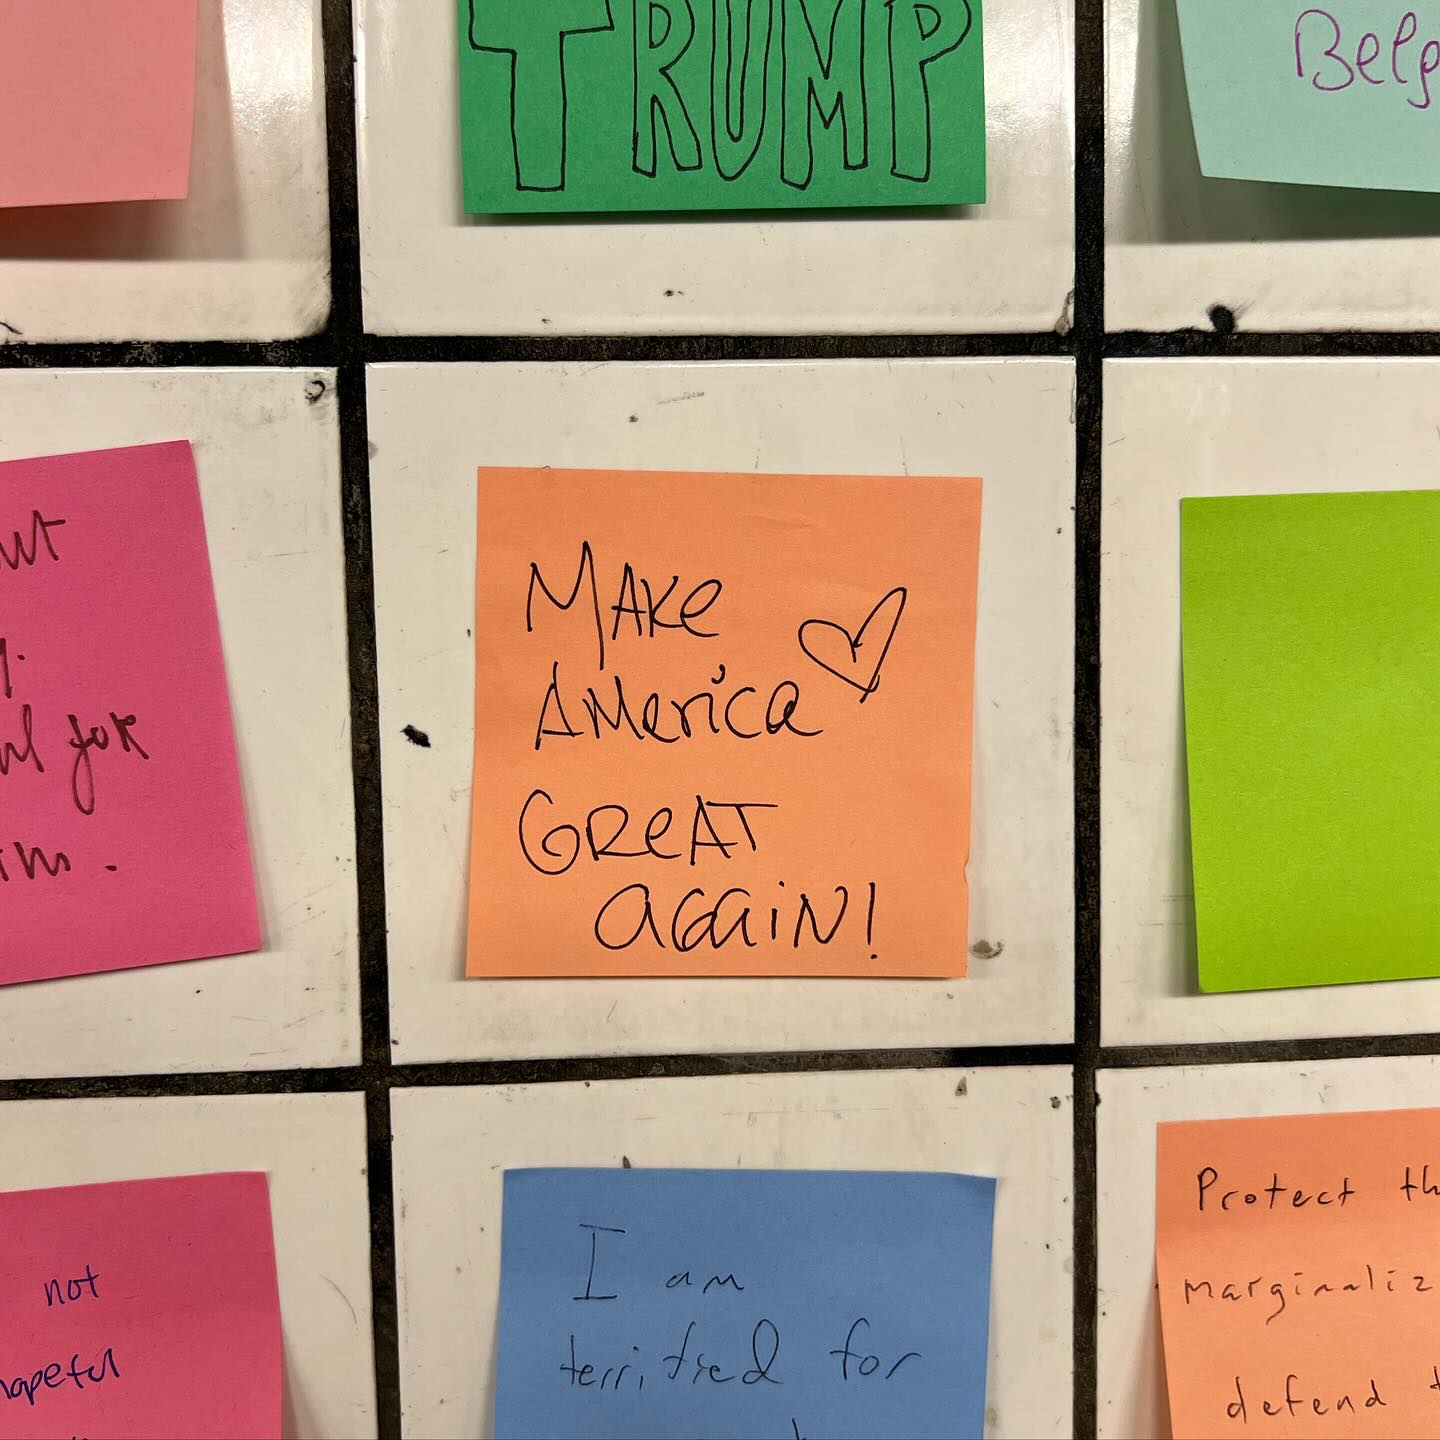 TRUMP
Belg
for
MAKe
AMerica
GReAT
AGAiN!
not
hopeful
I am
terrified for
Protect th
marginaliz
defend t